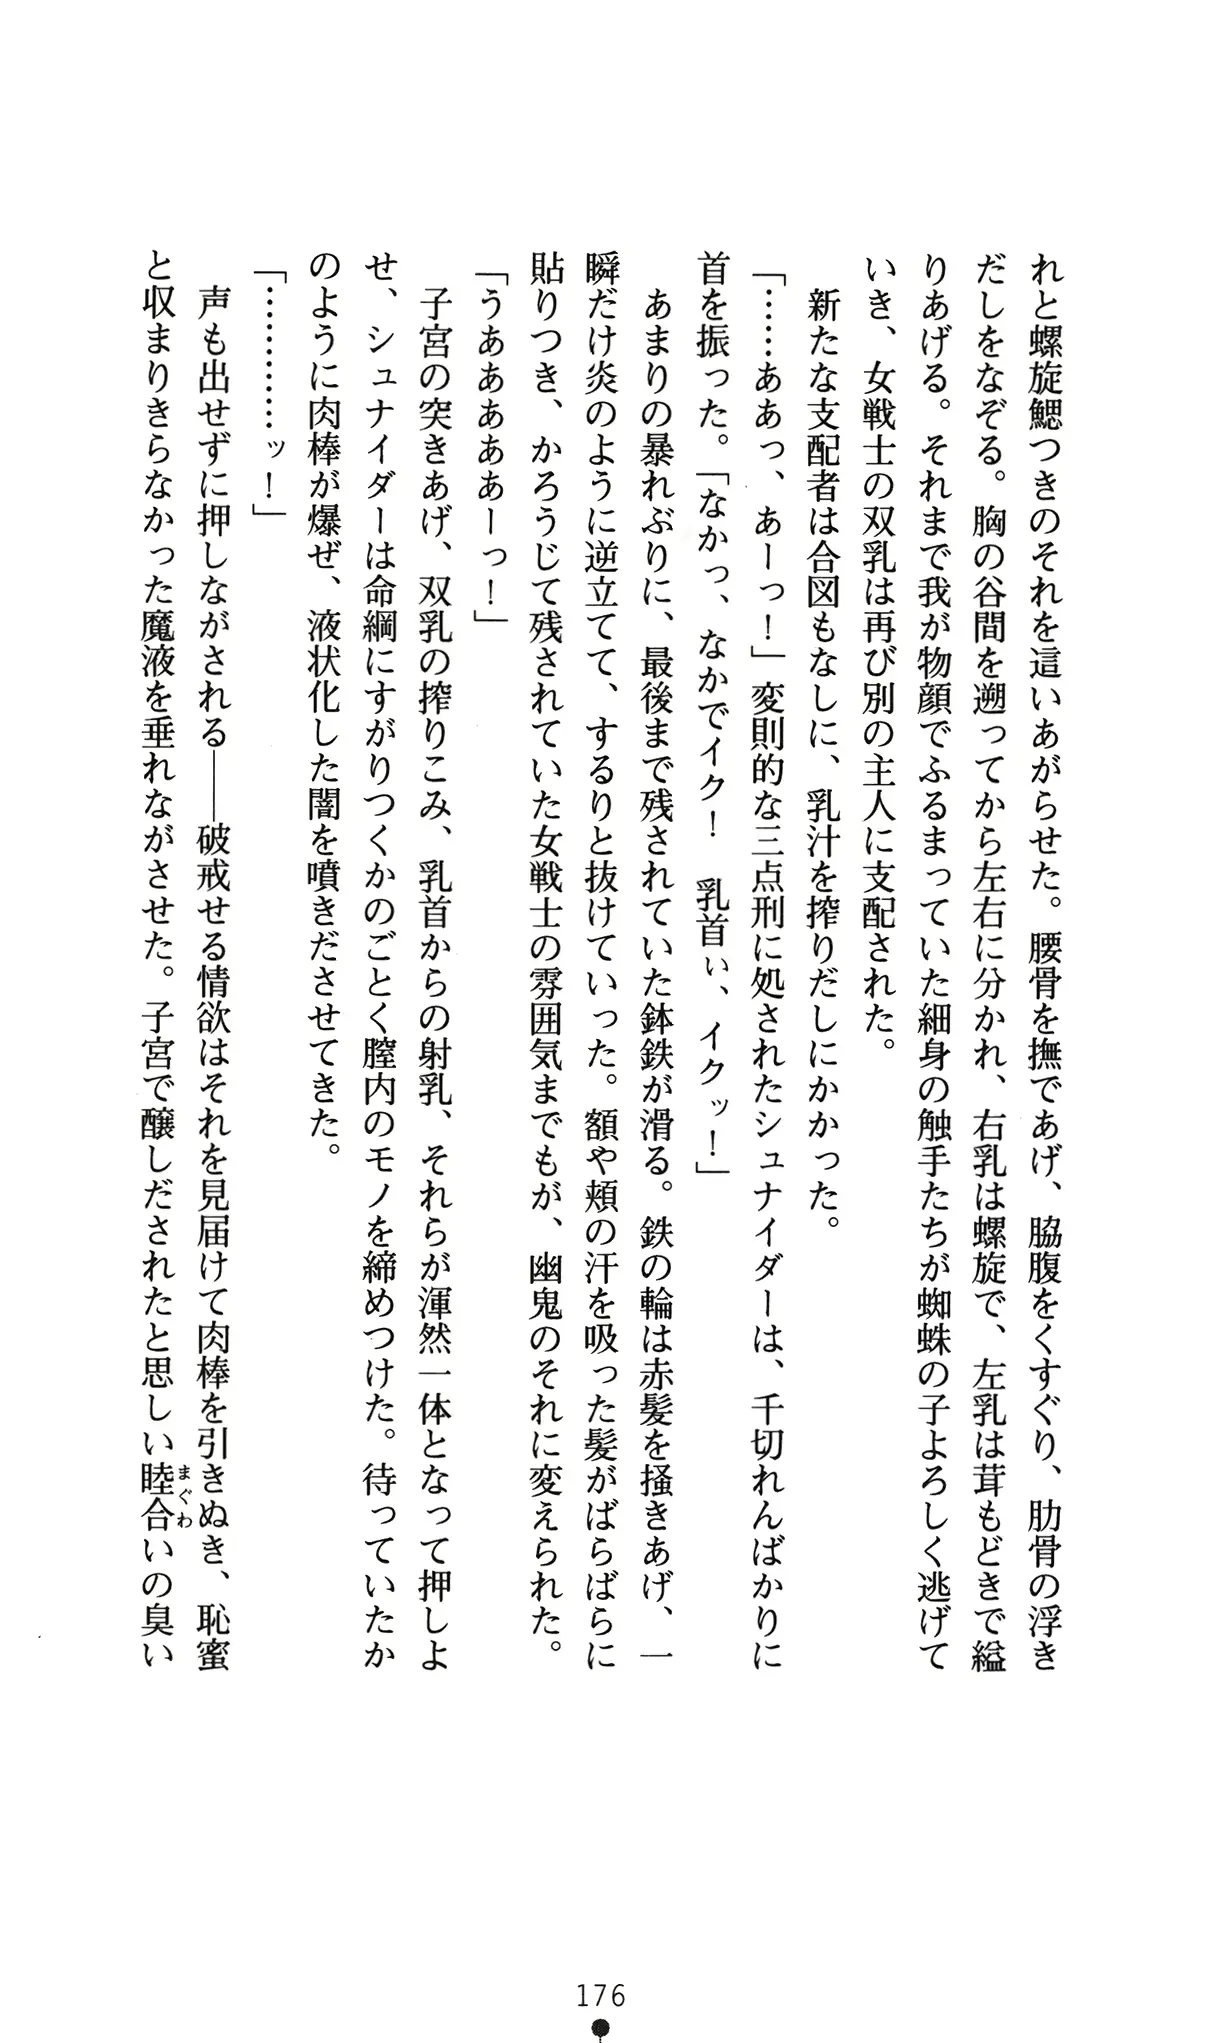 れと螺旋鰓つきのそれを這いあがらせた。腰骨を撫であげ、脇腹をくすぐり、肋骨の浮き
だしをなぞる。胸の谷間を遡ってから左右に分かれ、右乳は螺旋で、左乳は茸もどきで縊
りあげる。それまで我が物顔でふるまっていた細身の触手たちが蜘蛛の子よろしく逃げて
いき、女戦士の双乳は再び別の主人に支配された。
　新たな支配者は合図もなしに、乳汁を搾りだしにかかった。
「……ああっ、あーっ！」変則的な三点刑に処されたシュナイダーは、千切れんばかりに
首を振った。「なかっ、なかでイク！　乳首ぃ、イクッ！」
　あまりの暴れぶりに、最後まで残されていた鉢鉄が滑る。鉄の輪は赤髪を掻きあげ、一
瞬だけ炎のように逆立てて、するりと抜けていった。額や頬の汗を吸った髪がばらばらに
貼りつき、かろうじて残されていた女戦士の雰囲気までもが、幽鬼のそれに変えられた。
「うああああーっ！」
　子宮の突きあげ、双乳の搾りこみ、乳首からの射乳、それらが渾然一体となって押しよ
せ、シュナイダーは命綱にすがりつくかのごとく膣内のモノを締めつけた。待っていたか
のように肉棒が爆ぜ、液状化した闇を噴きださせてきた。
「…………ッ！」
　声も出せずに押しながされる――破戒せる情欲はそれを見届けて肉棒を引きぬき、恥蜜
と収まりきらなかった魔液を垂れながさせた。子宮で醸しだされたと思しい睦合いの臭い
まぐわ
176